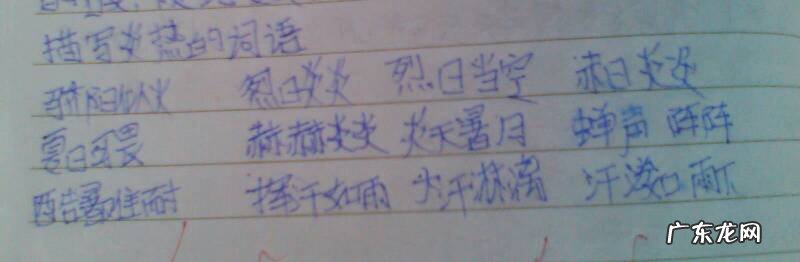 描写炎热的词语
骄阳似火 烈日炎炎 烈日当空 赤日炎炎
夏日可畏 赫赫炎炎 炎天暑月 蝉声阵阵
酷暑难耐 挥汗如雨 大汗淋漓 汗流如雨下
广东龙网